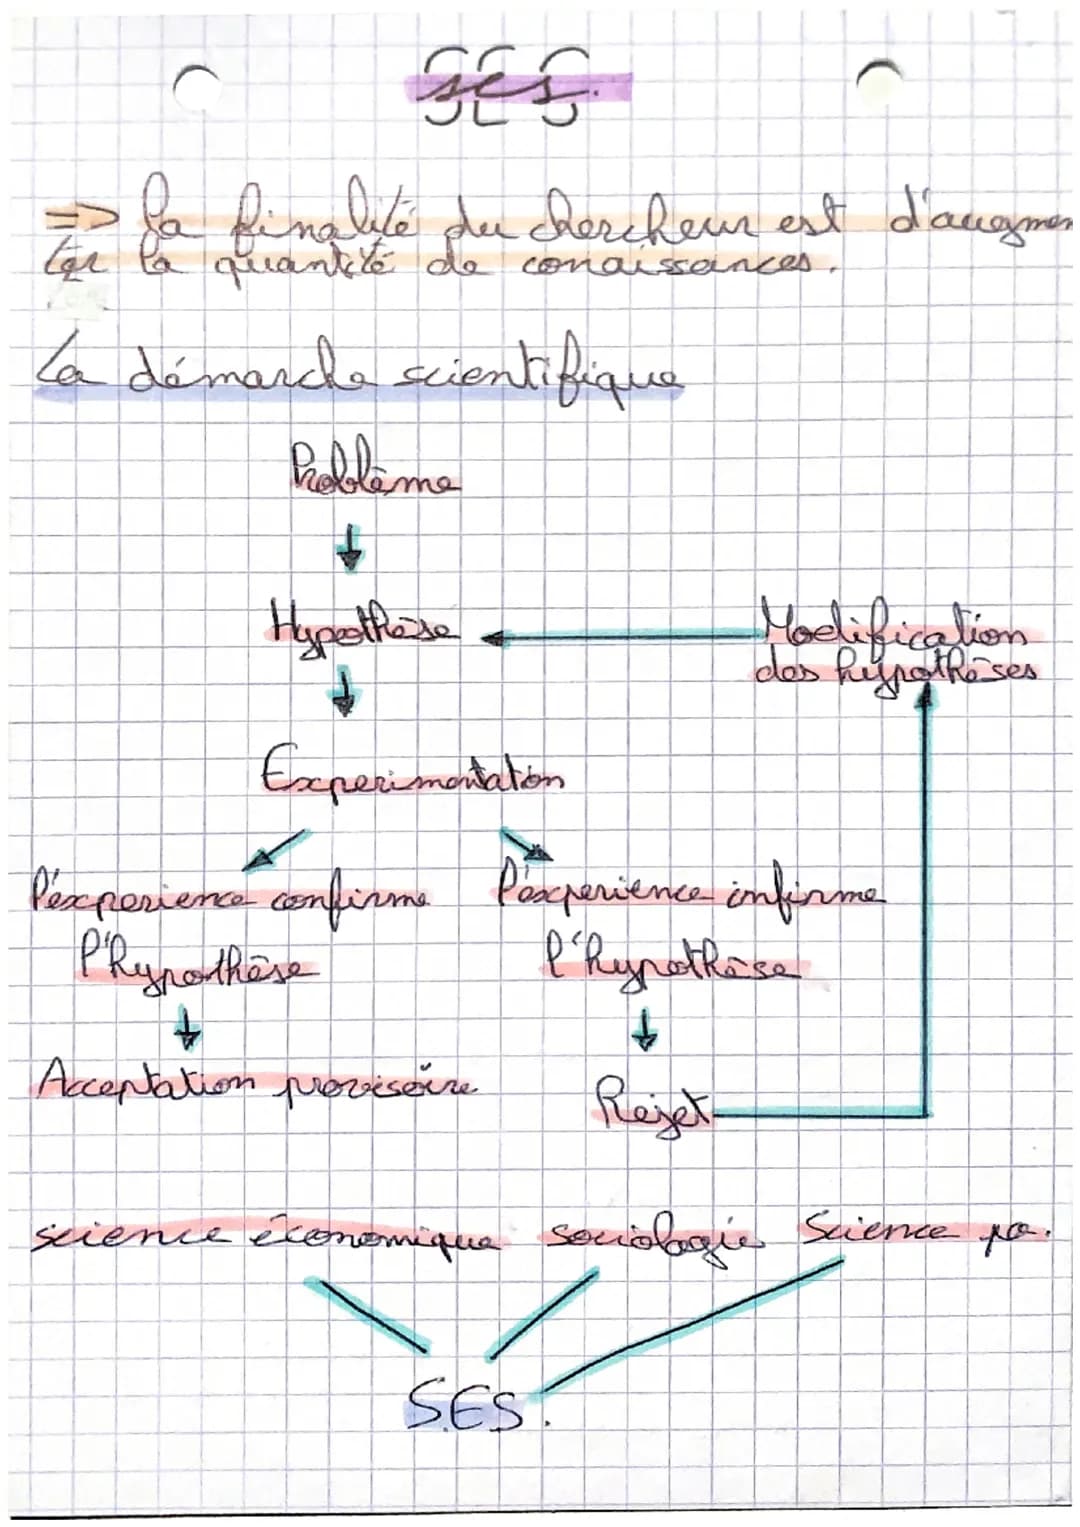 SES.
=> la finalité du chercheur est d'augmen
ter la quantité de conaissances.
La démarche scientifique
Problème
Hypothèse
Modification
des hypothèses
Experimentation
l'éxperience confirme
l'éxperience infirme
l'hypothèse
l'hypothèse
Acceptation provisoire
Rejet
science économique sociologie Science po.
SES.